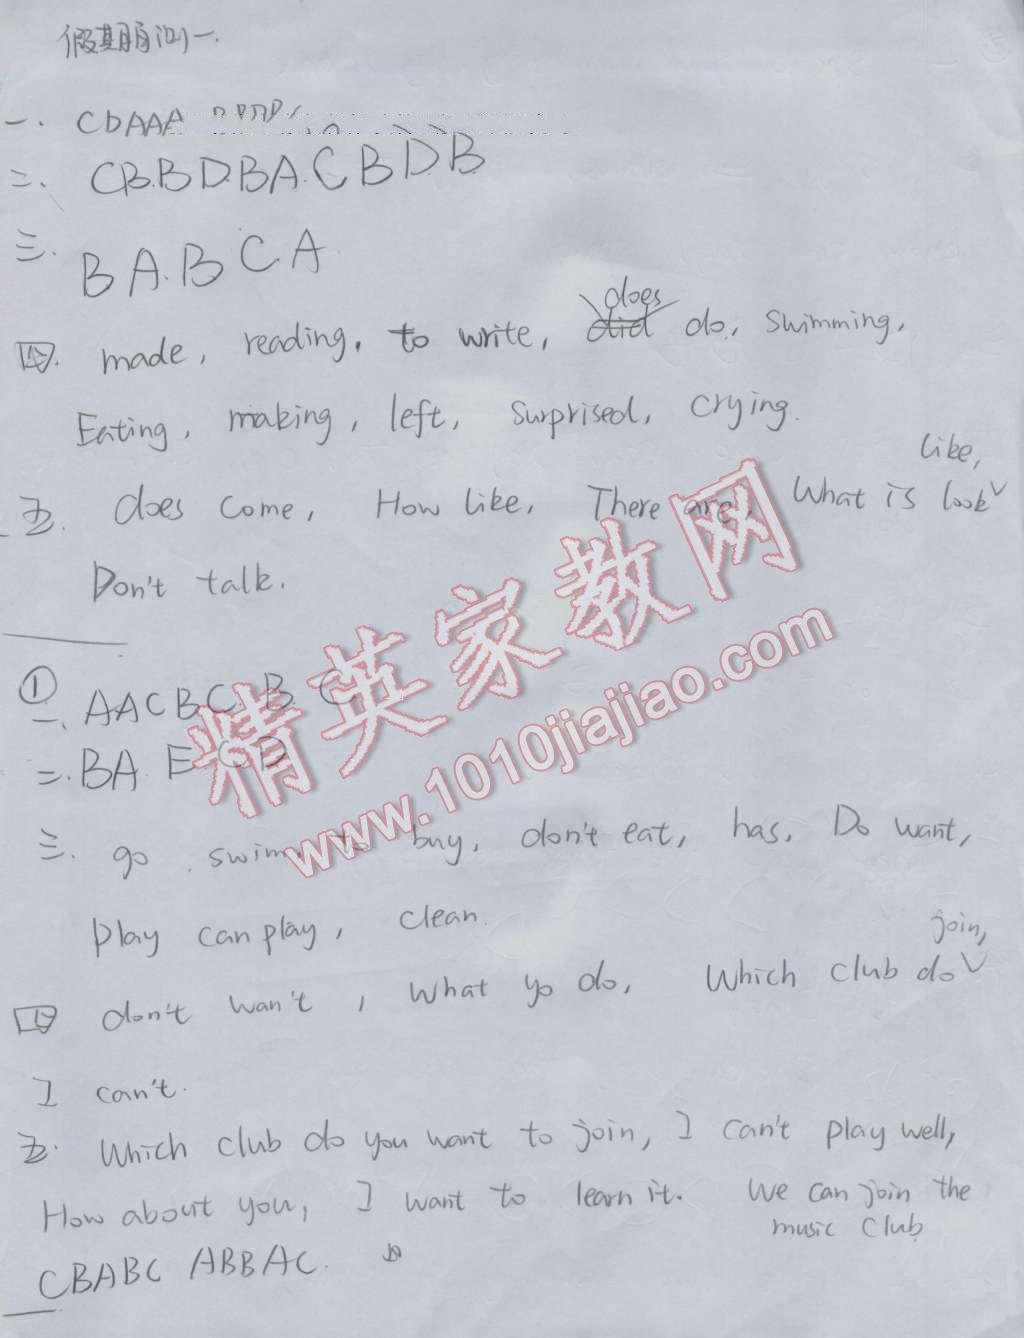 假期自测一.
一. CDAAA
二、 CBBDBA.CBDDB
三. BA.BCA
四. made, reading, to write, does do, swimming,
Eating, making, left, surprised, crying.
like,
五. does come, How like, There are, What is look
Don't talk.
①
一、 AACBC.B.C
二. BA. ECD
三. go swim, to buy, don't eat, has, Do want,
play can play, clean.
join,
四 don't wan't, What yo do, Which club do
I can't.
五. Which club do you want to join, I can't play well,
How about you, I want to learn it. We can join the
music club
CBABC ABBAC.
精英家教网
www.1010jiajiao.com